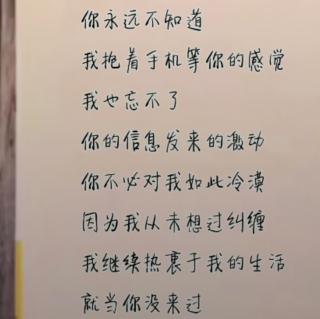 你永远不知道
我抱着手机等你的感觉
我也忘不了
你的信息发来的激动
你不必对我如此冷漠
因为我从未想过纠缠
我继续热衷于我的生活
就当你没来过